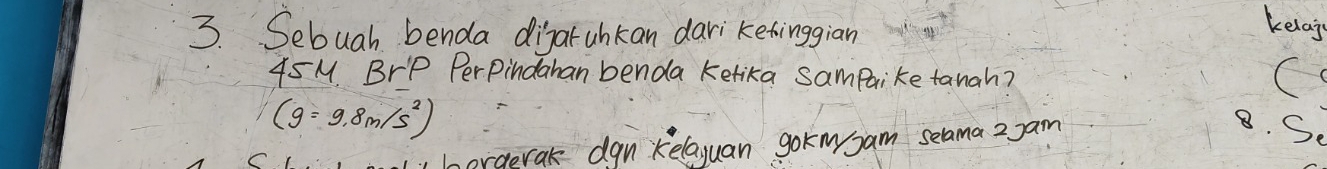 3. Sebuah benda dijatuhkan dari ketinggian
45M. BrP Perpindahan benda ketika sampai ke tanah?
(g = 9,8 m/s²)
bergerak dgn kelajuan 90km/jam selama 2 jam
8. Se